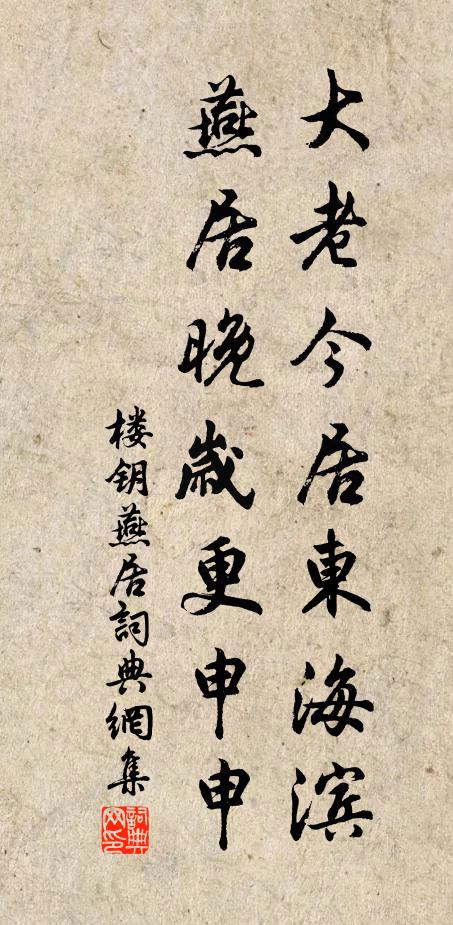 大老今居東海滨
燕居晚歲更申申
楼钥燕居詞典網集
詞典网印